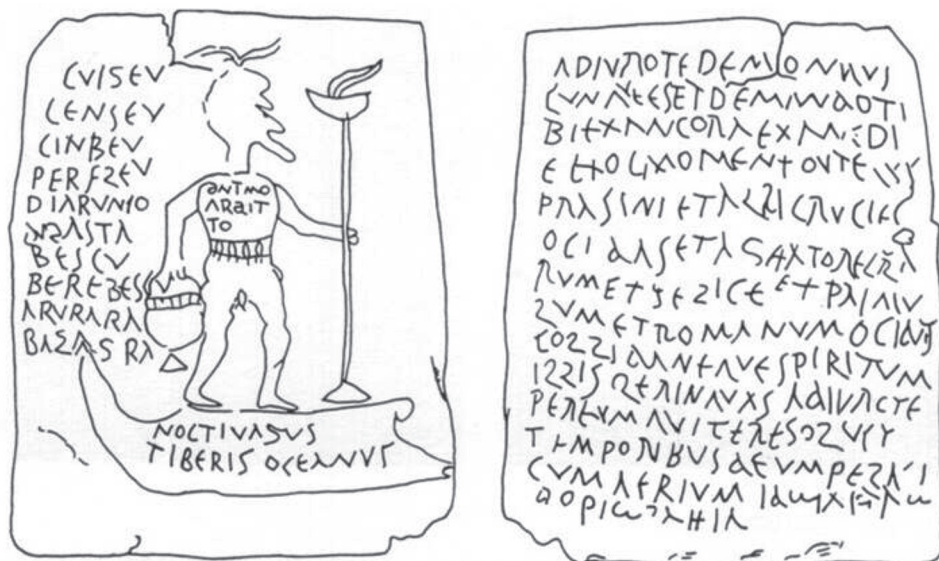 CVIGEV
CENSEV
CINBEV
PERFLEV
DIARVNCO
DEASTA
BESCV
BEREBESCV
ARVRARA
BAZAGRA
ANTMO
ARAIT
TO
NOCTIVAGVS
TIBERIS OCEANVS
ADIVRO TE DEMON QVI
CVNQVE ES ET DEMANDO TI
BI EX ANC ORA EX ANC DI
E EX OC MOMENTO VT EQVOS
PRASINI ET ALBI CRVCIES
OCIDAS ET AGITATORE CLA
RVM ET FELICE ET PRIMVLV
M ET ROMANVM OCIDAS
COLLIDA NEQVE SPIRITVM
ILLIS LERINQVAS ADIVRO TE
PER EVM QVI TE RESOLVIT
TEMPORIBVS DEVM PELAGI
CVM AERIVM